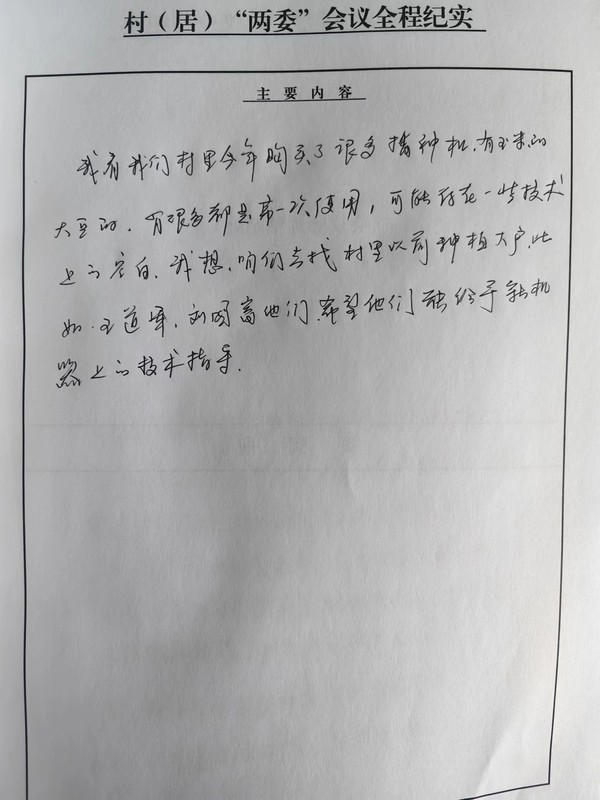 村（居）“两委”会议全程纪实
主要内容
我看我们村里今年购买了很多播种机，有玉米的
大豆的，有很多都是第一次使用，可能存在一些技术
上的空白，我想，咱们去找村里以前种植大户，比
如：王道峰，刘国富他们，希望他们能给予新机
器上的技术指导。